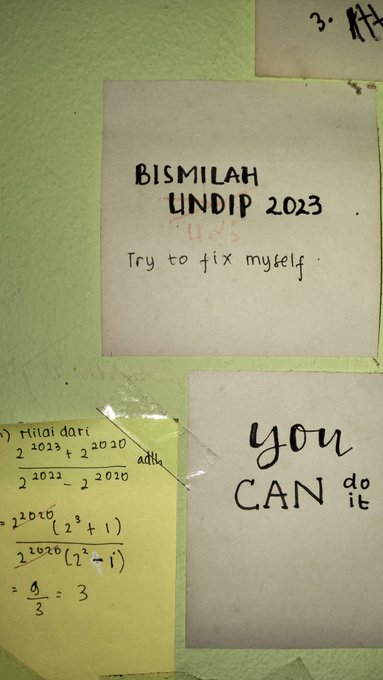 3.
BISMILAH
UNDIP 2023
UNS
Try to fix myself
you
CAN do it
1) Nilai dari
2^2023 + 2^2020
2^2022 - 2^2020
adlh
= 2^2020 (2^3 + 1)
2^2020 (2^2 - 1)
= 9/3 = 3